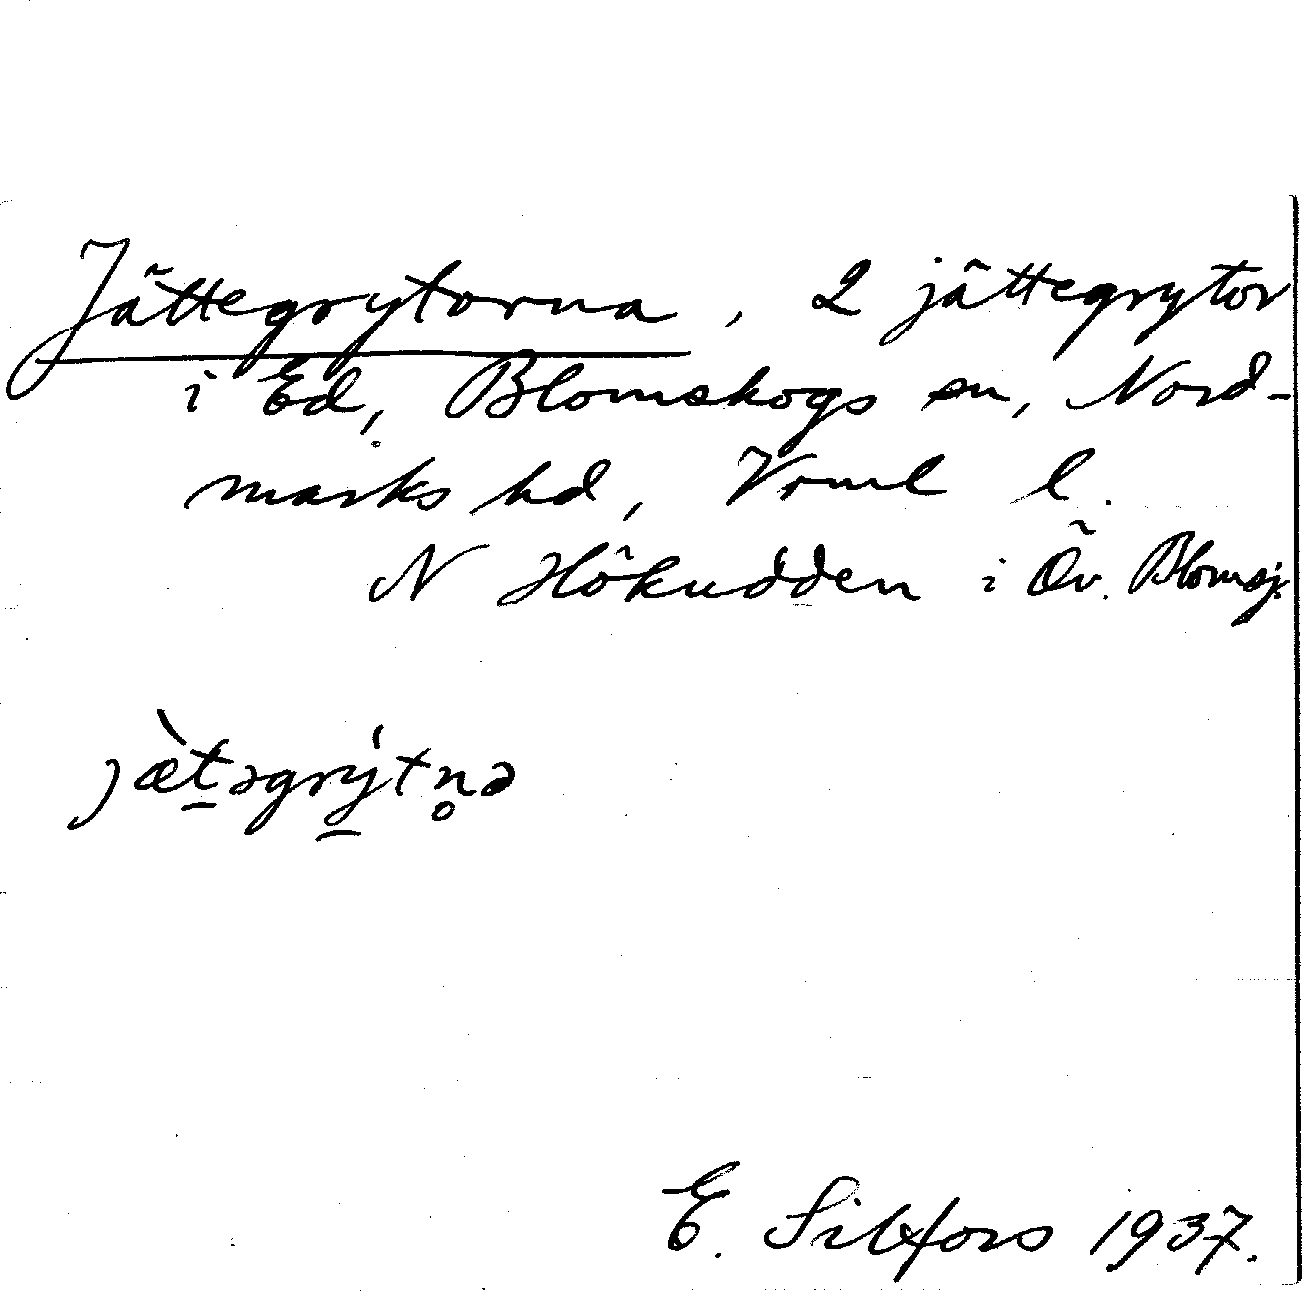 Jättegrytorna, 2 jättegrytor
i Ed, Blomskogs sn, Nord-
marks hd, Vrml l.
N Hökudden i Öv. Blomsj.
jæ̀t̠əgrý̠tn̥ə
E. Silfors 1937.